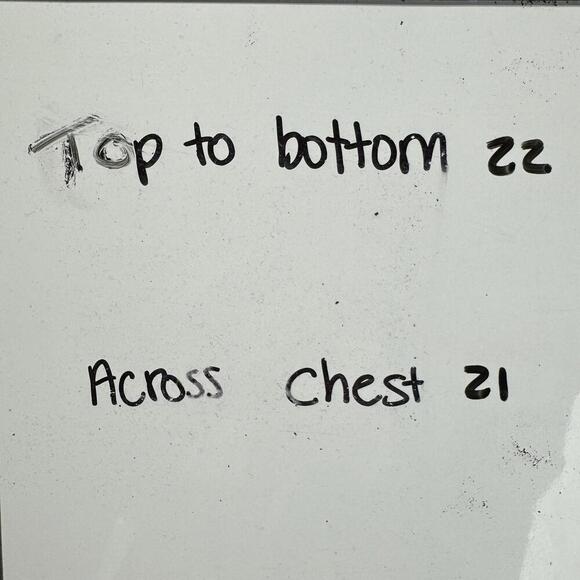 Top to bottom 22
Across Chest 21